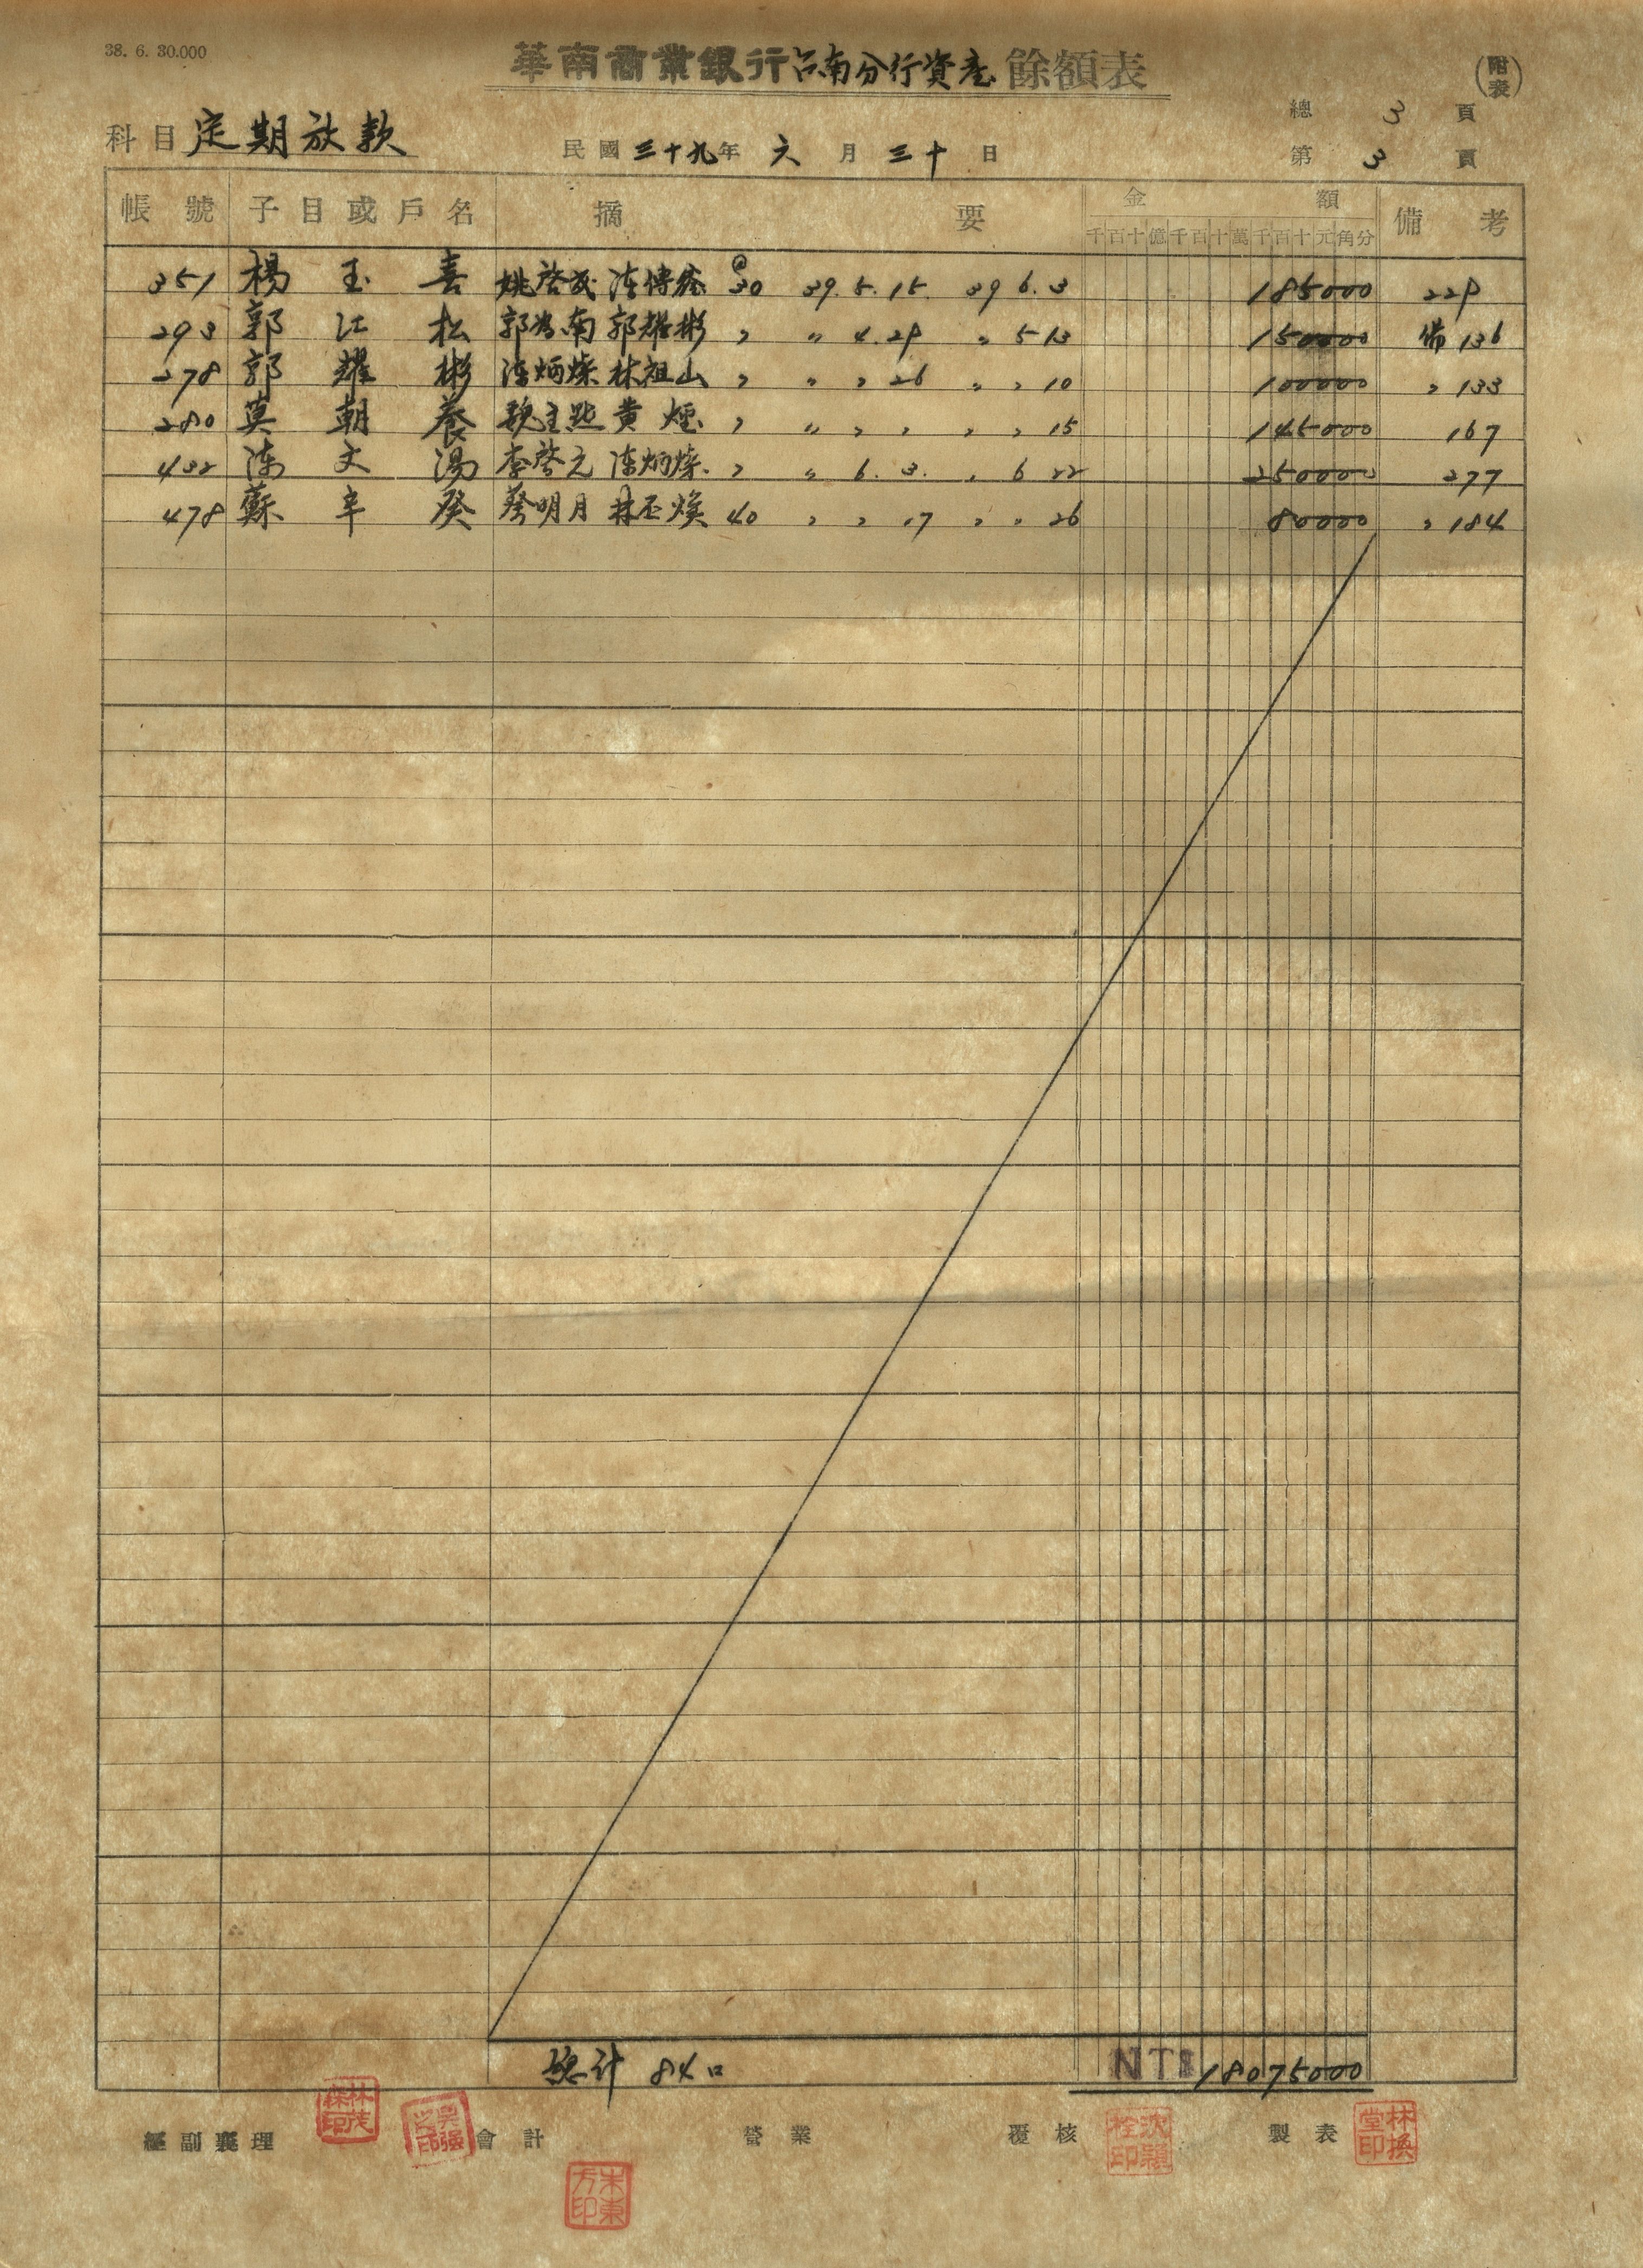 38. 6. 30.000
華南商業銀行台南分行資產餘額表
(附表)
總 3 頁
科目 定期放款
民國三十九年 六 月 三十 日
第 3 頁
帳號 子目或戶名 摘要 金額 備考
千百十億千百十萬千百十元角分
351 楊玉喜 姚啓 陳傳 @30 39.5.15. 39 6.3 185000 229
293 郭江松 郭 南 郭耀彬 〃 〃 4.29 〃 5 13 150000 備 136
278 郭耀彬 陳炳燦 林祖山 〃 〃 〃 26 〃 〃 10 100000 〃 133
280 莫朝養 黄 煙 〃 〃 〃 〃 〃 〃 15 145000 167
432 陳文湯 李啓元 陳炳燦 〃 〃 6.3. 〃 6 22 250000 277
478 蘇辛癸 蔡明月 林 煥 40 〃 〃 17 〃 〃 26 80000 〃 184
總計 84口 NT$ 18075000
經副襄理 會計 營業 覆核 製表
林茂琛印
吳強之印
朱東方印
林換堂印